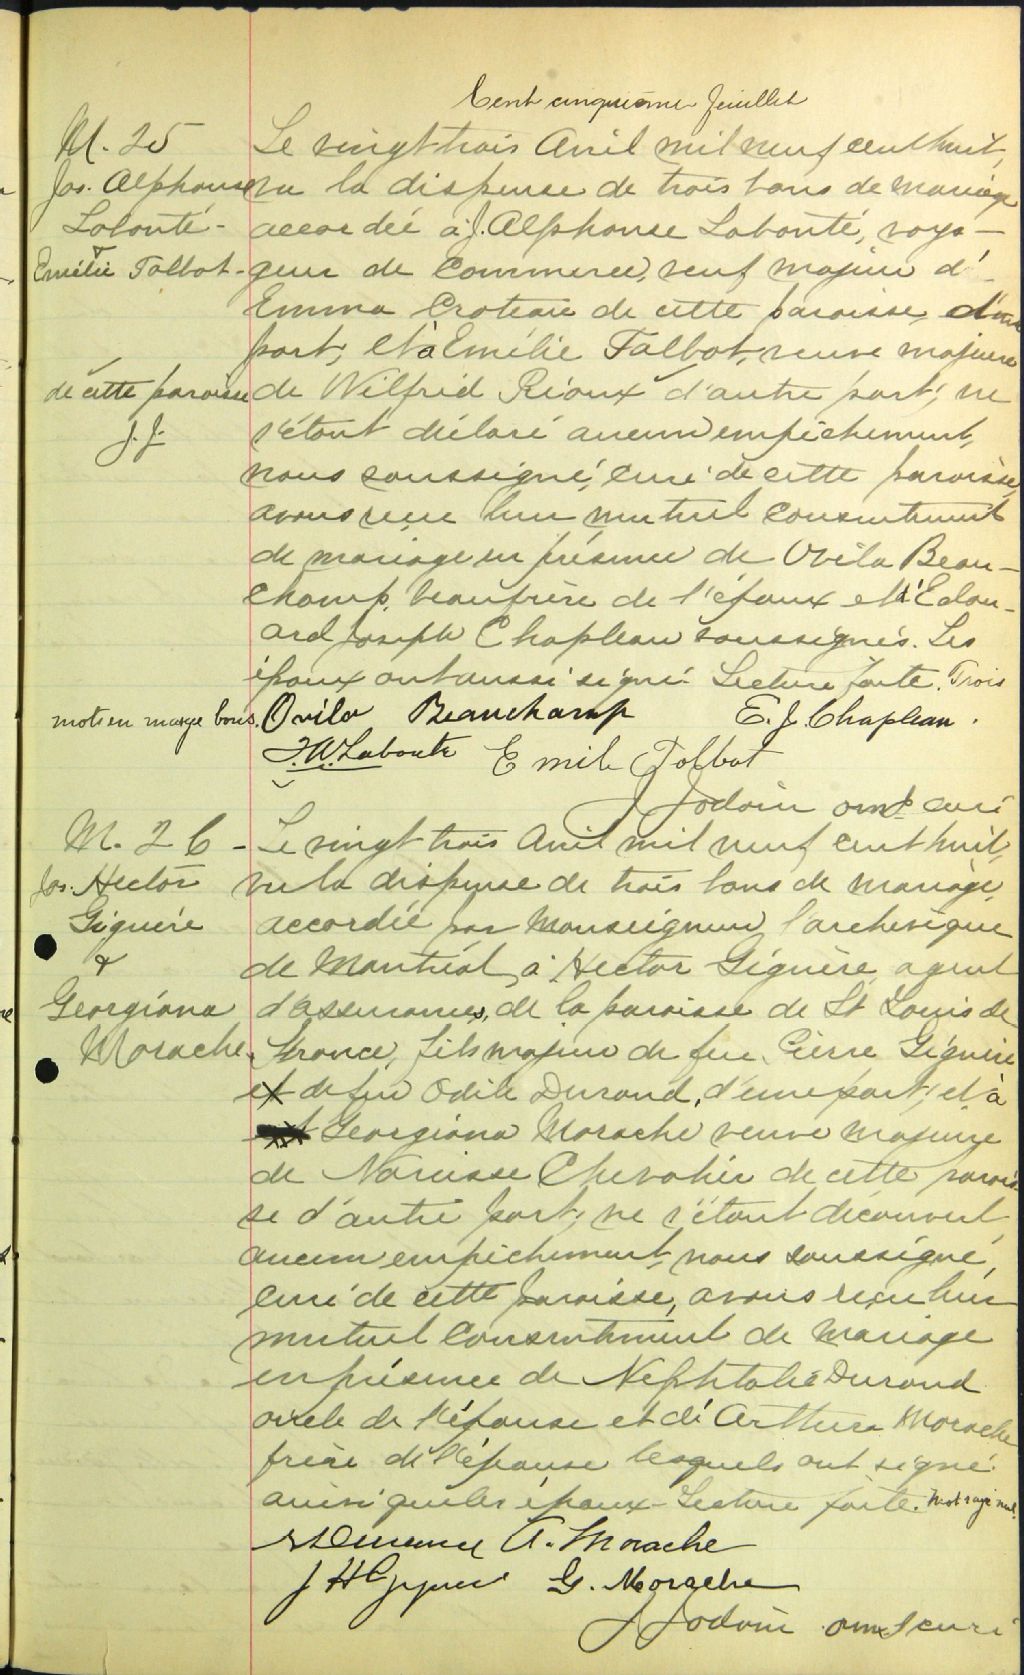 Cent cinquième feuillet
M. 25
Jos. Alphonse
Labonté
&
Emélie Talbot
Le vingt trois Avril mil neuf cent huit,
vu la dispense de trois bans de mariage
accordée à J. Alphonse Labonté, voya-
geur de Commerce, veuf majeur d'
Emma Croteau de cette paroisse, d'une
part, et à Emélie Talbot, veuve majeure
de cette paroisse
J. J.
de Wilfrid Rioux d'autre part; ne
s'étant déclaré aucun empêchement,
nous soussigné, curé de cette paroisse,
avons reçu leur mutuel consentement
de mariage en présence de Ovila Beau-
champ, beaufrère de l'époux et d'Edou-
ard Joseph Chapleau soussignés. Les
époux ont aussi signé. Lecture faite. Trois
mots en marge bons.
Ovila Beauchamp E. J. Chapleau.
Labonte Emili Talbot
J Jodoin curé
M. 26
Jos. Hector
Giguère
&
Georgiana
Morache
Le vingt trois Avril mil neuf cent huit,
vu la dispense de trois bans de mariage,
accordée par Monseigneur l'archevêque
de Montréal, à Hector Giguère, agent
d'assurances, de la paroisse de St Louis de
France, fils majeur de feu Pierre Giguère
et de feu Odile Durand, d'une part; et à
Georgiana Morache veuve majeure
de Narcisse Chevalier de cette parois-
se d'autre part; ne s'étant découvert
aucun empêchement, nous soussigné,
curé de cette paroisse, avons reçu leur
mutuel consentement de mariage
en présence de Nephtalie Durand
oncle de l'épouse et de Arthur Morache
frère de l'épouse lesquels ont signé
ainsi que les époux - Lecture faite. Mot rayé nul.
A. Morache
G. Morache
J Jodoin curé